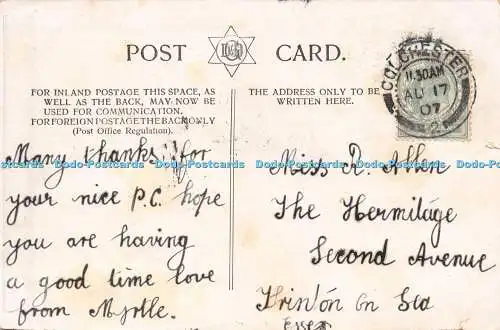 POST CARD.
FOR INLAND POSTAGE THIS SPACE, AS
WELL AS THE BACK, MAY NOW BE
USED FOR COMMUNICATION.
FOR FOREIGN POSTAGE THE BACK ONLY
(Post Office Regulation).
THE ADDRESS ONLY TO BE
WRITTEN HERE.
COLCHESTER
11.30AM
AU 17
07
Many thanks for
your nice P.C. hope
you are having
a good time love
from Myrtle.
Miss R. Allen
The Hermitage
Second Avenue
Frinton On Sea
Essex
Dodo-Postcards